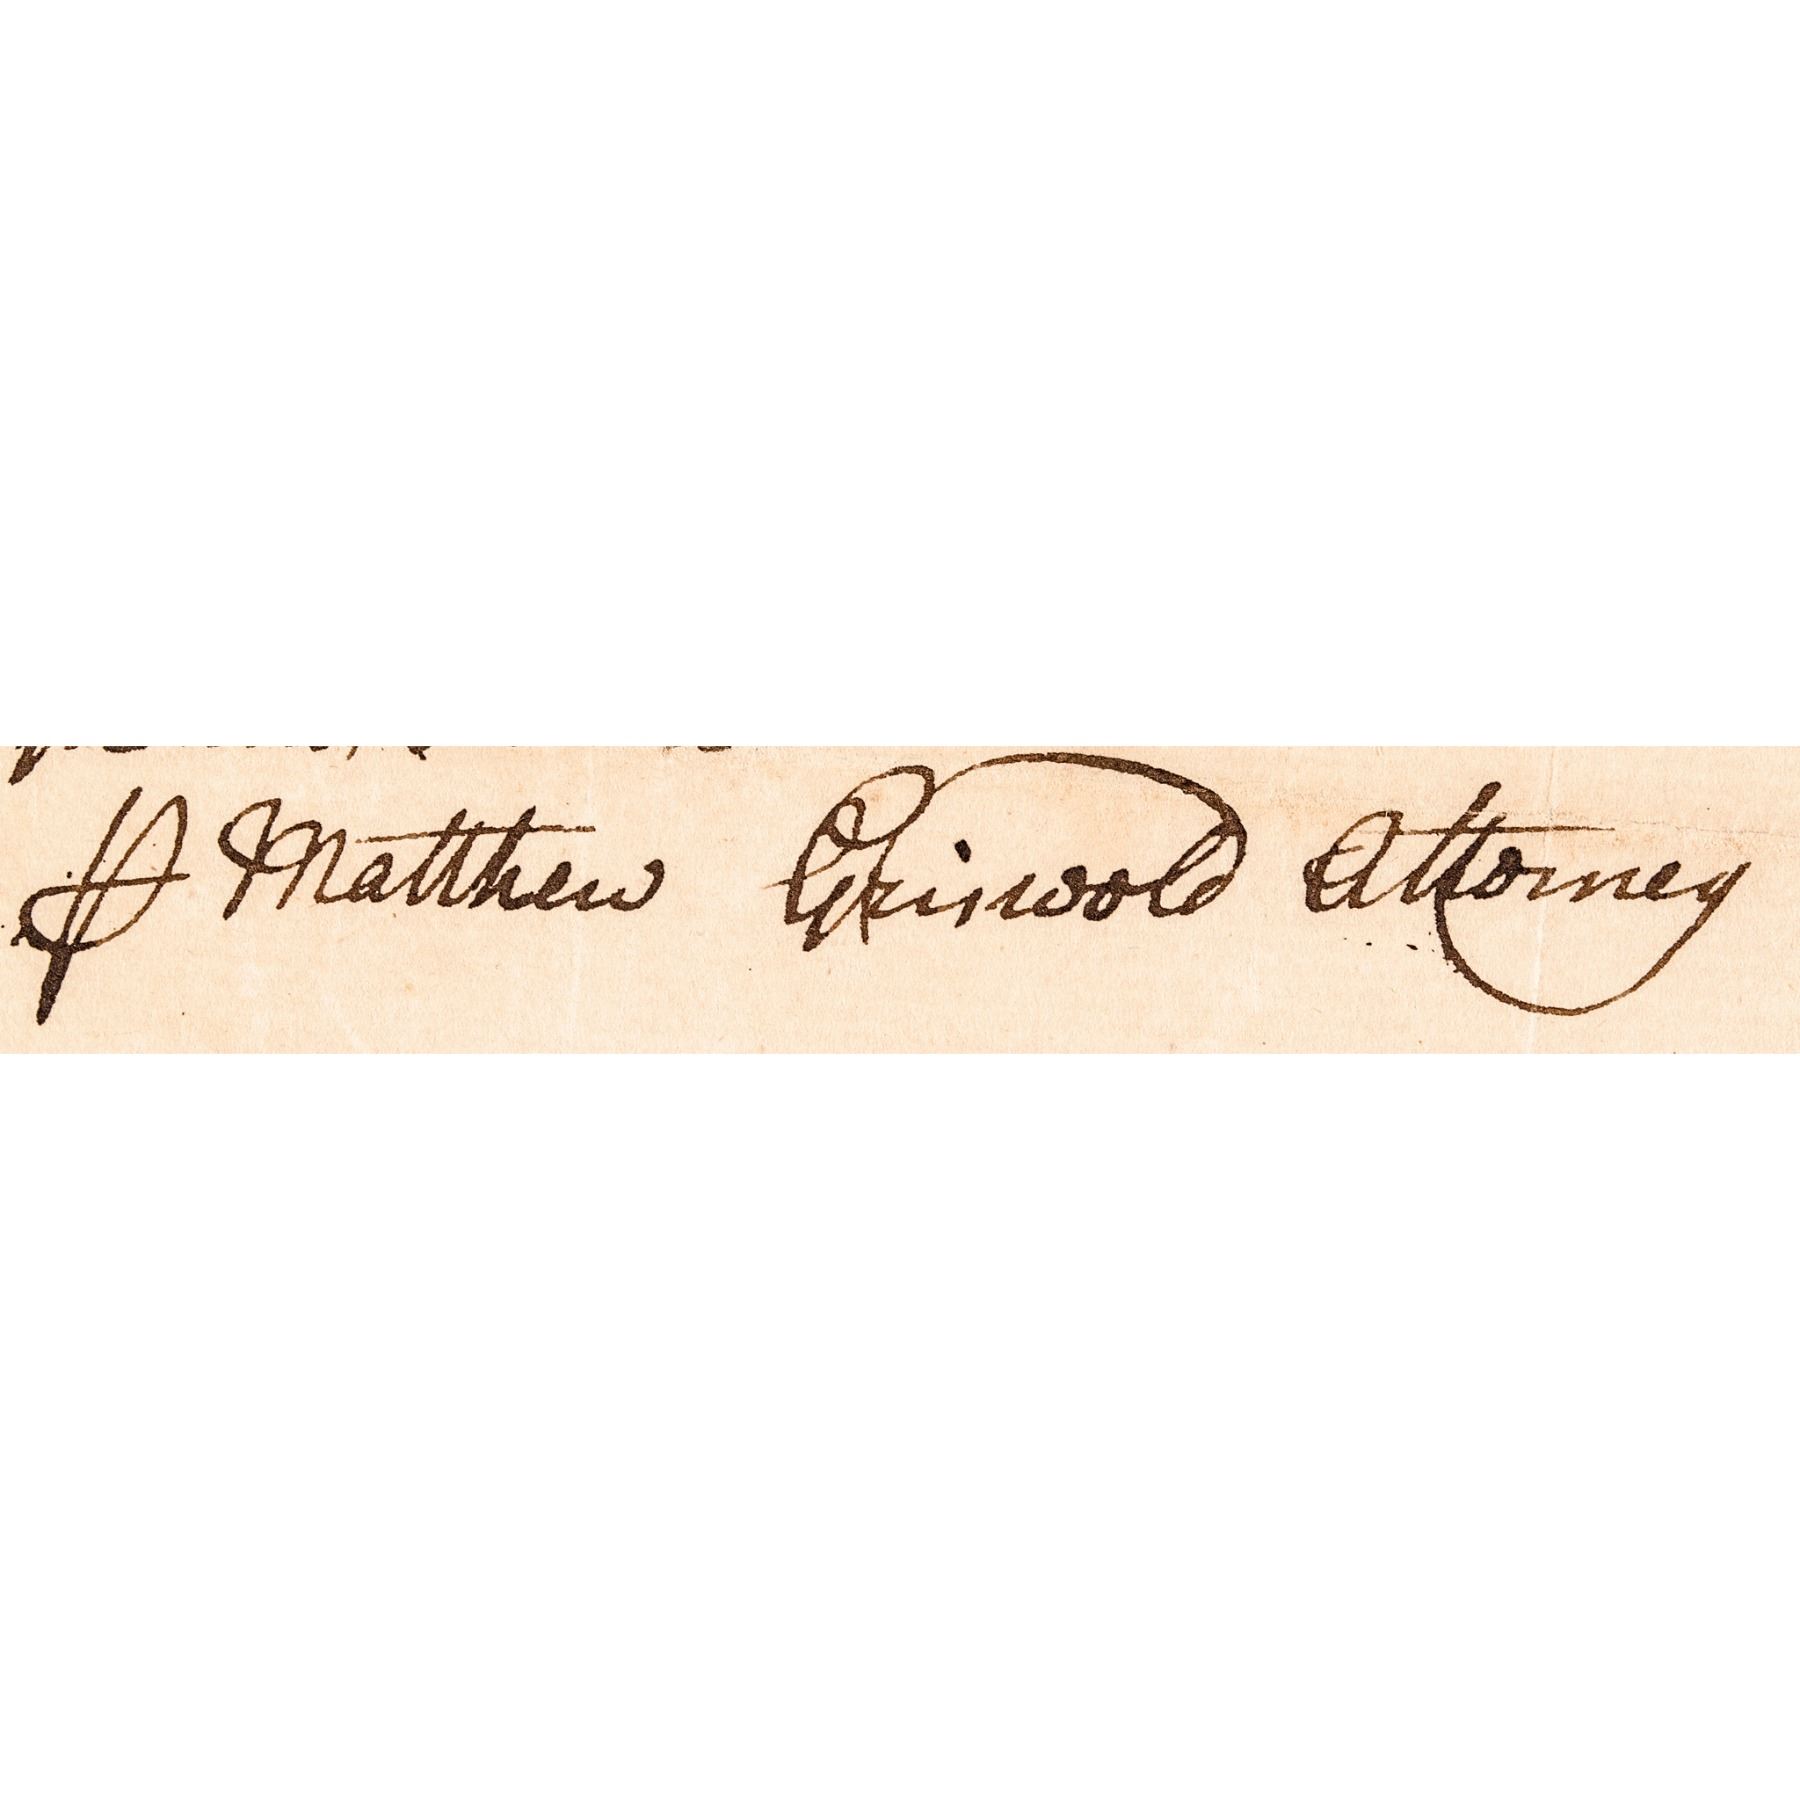 ⅌ Matthew Griswold Attorney